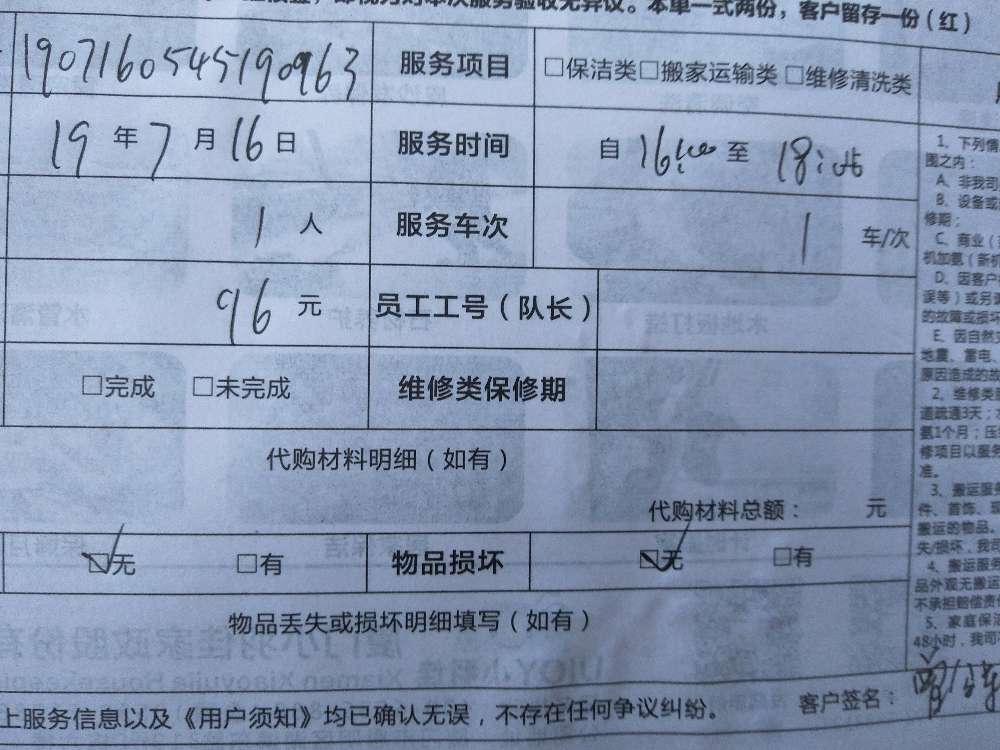 即视为对本次服务验收无异议。本单一式两份，客户留存一份（红）
1907160545190963 服务项目 □保洁类□搬家运输类 □维修清洗类
19 年 7 月 16 日 服务时间 自 16:00 至 18:
1 人 服务车次 1 车/次
96 元 员工工号（队长）
□完成 □未完成 维修类保修期
代购材料明细（如有）
代购材料总额： 元
☑无 □有 物品损坏 ☑无 □有
物品丢失或损坏明细填写（如有）
上服务信息以及《用户须知》均已确认无误，不存在任何争议纠纷。 客户签名：
1、下列情
围之内：
A、非我司
B、设备或
修期；
C、商业（
机加氨（新机
D、因客户
误等）或另
的故障或损坏
E、因自然灾
地震、雷电、
原因造成的故
2、维修类
道疏通3天；
氨1个月；压
修项目以服务
准。
3、搬运服务
件、首饰、
搬运的物品。
失/损坏，我司
4、搬运服务
品外观无搬运
不承担赔偿责
5、家庭保洁
48小时，我司